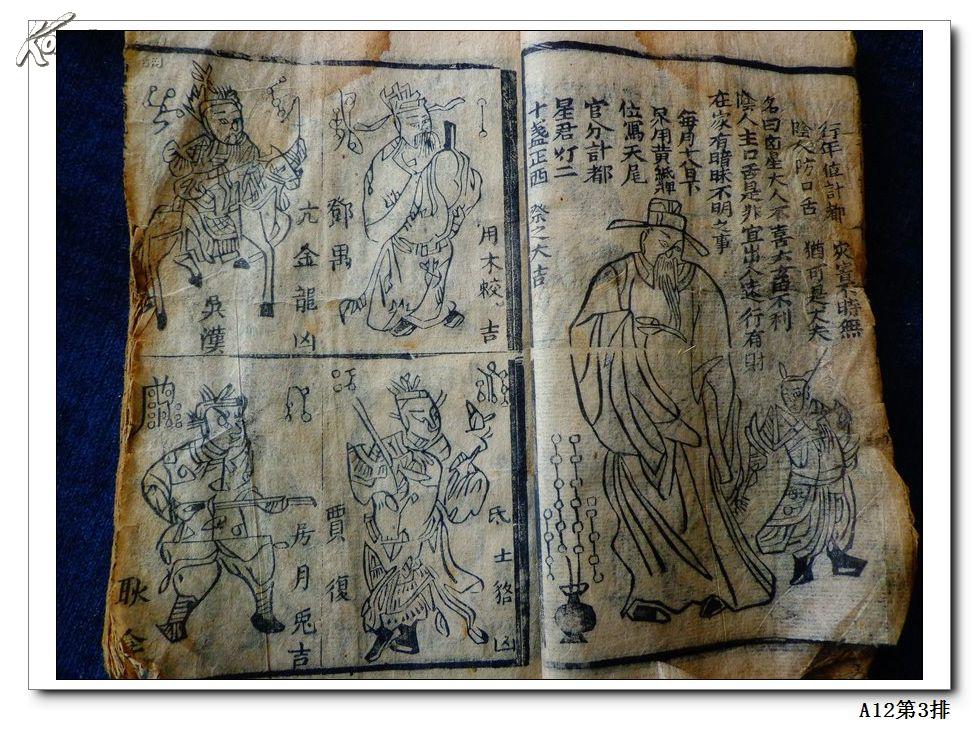 行年值計都 災害時無
陰人防口舌 猶可是丈夫
名曰凶星大人不喜六畜不利
陰人主口舌是非宜出入遠行有財
在家有暗昧不明之事
每月十八日下
界用黃紙牌
位寫天尾
官分計都
星君灯二
十盞正西 祭之大吉
用木蛟 吉
鄧禹
亢金龍凶
吳漢
氐土貉凶
賈復
房月兎吉
耿弇
A12第3排